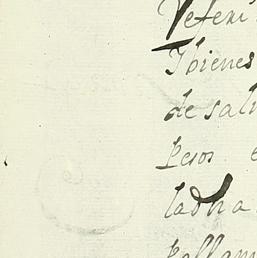 Veteri
Ybienes
de sali
Pesos e
ladha
hallam